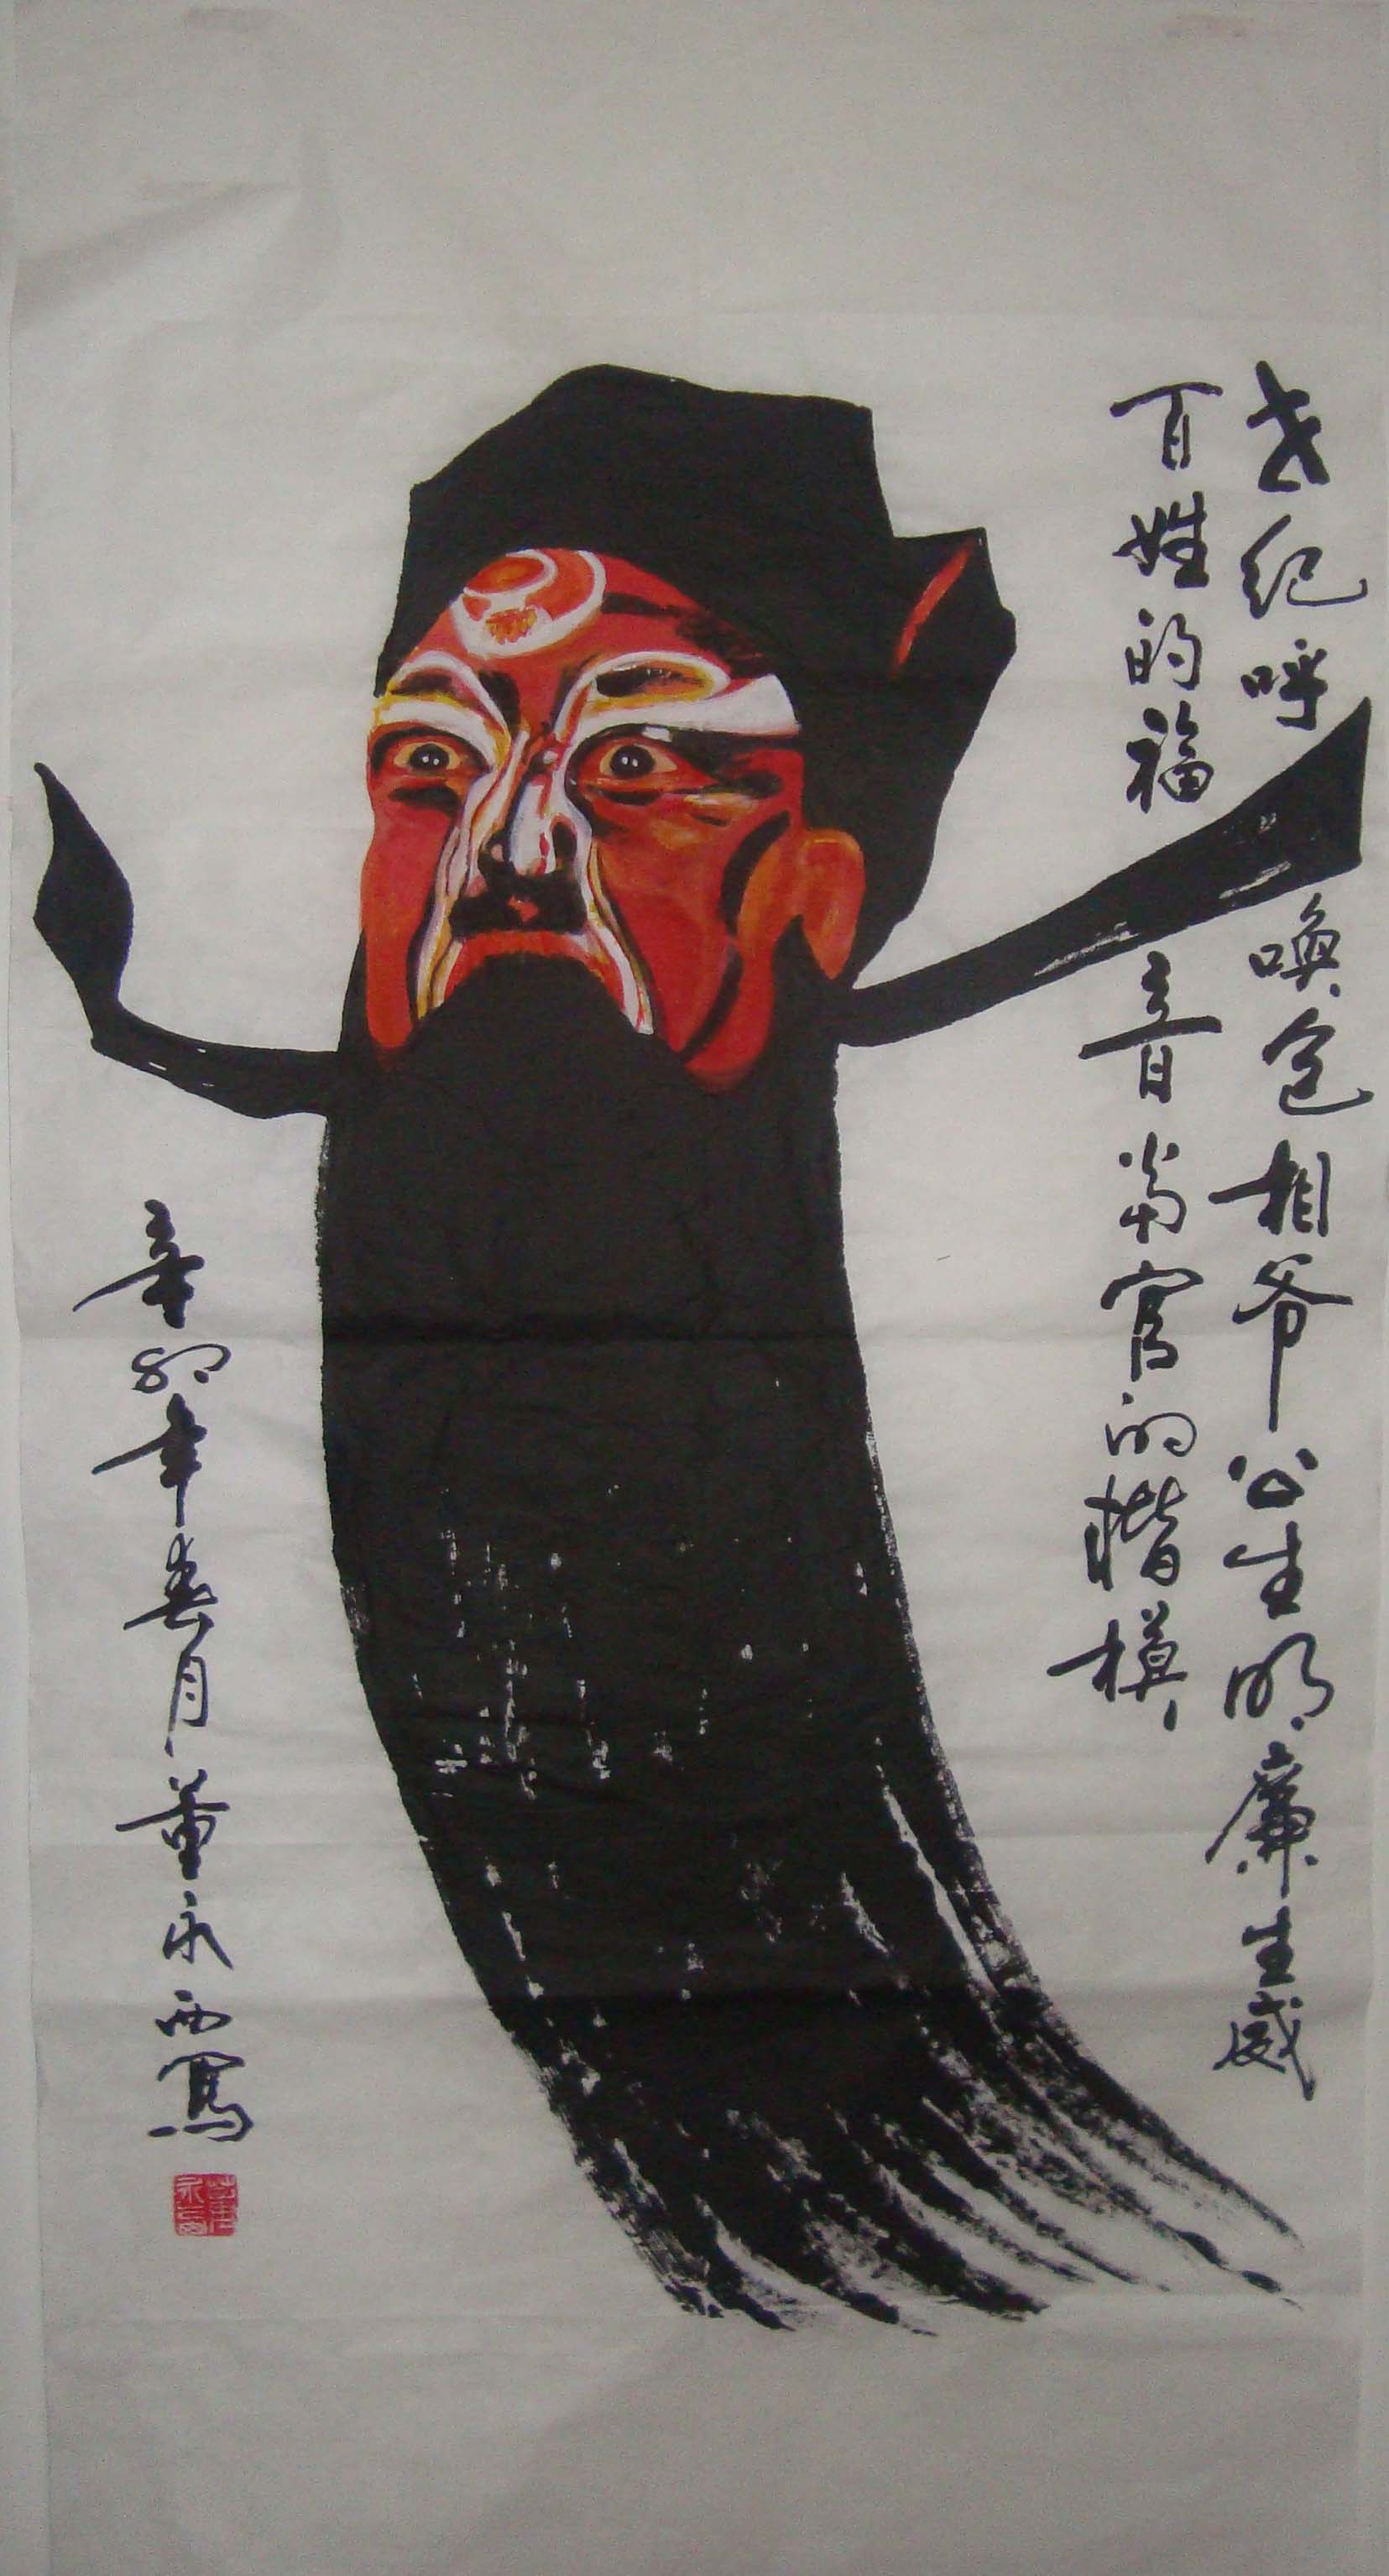 世纪呼唤包相爷公生明廉生威
百姓的福音当官的楷模
辛卯年春月董永西写
董永西